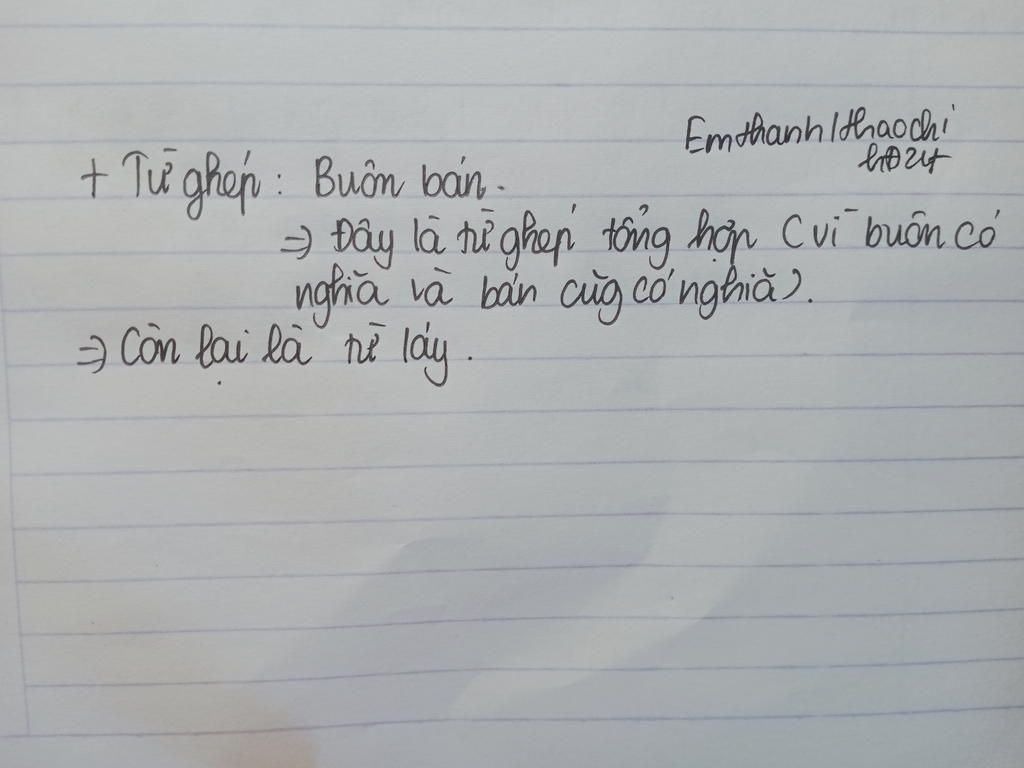 Emthanh/thaochi
+ Từ ghép: Buôn bán.
=> Đây là từ ghép tổng hợp (vì buôn có
nghĩa và bán cũg có nghĩa).
=> Còn lại là từ láy.